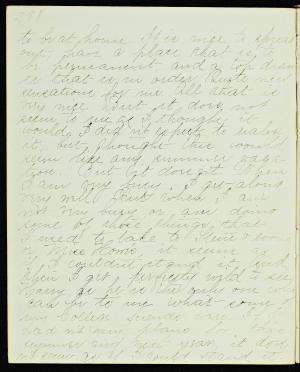 281
to be at home. It is nice to spread
out, have a place that is to
be permanent and a top drawer
that is in order. Quite new
sensations for me. All that is
very nice but it does not
seem to me as I thought it
would. I did not expect to
it, but thought this would
seem like any summer vaca-
tion. But it doesn't. When
I am very busy, I get along
very well but when I am
not very busy or am doing
some of those things that
I used to take to room
Miss it seems as
if I couldn't stand it and
then I get perfectly wild to see
Harry as he is the only one who
can be to me what some of
my College friends were. If I
had not any plans for this
summer and next year, it does
not seem as if I could stand it.